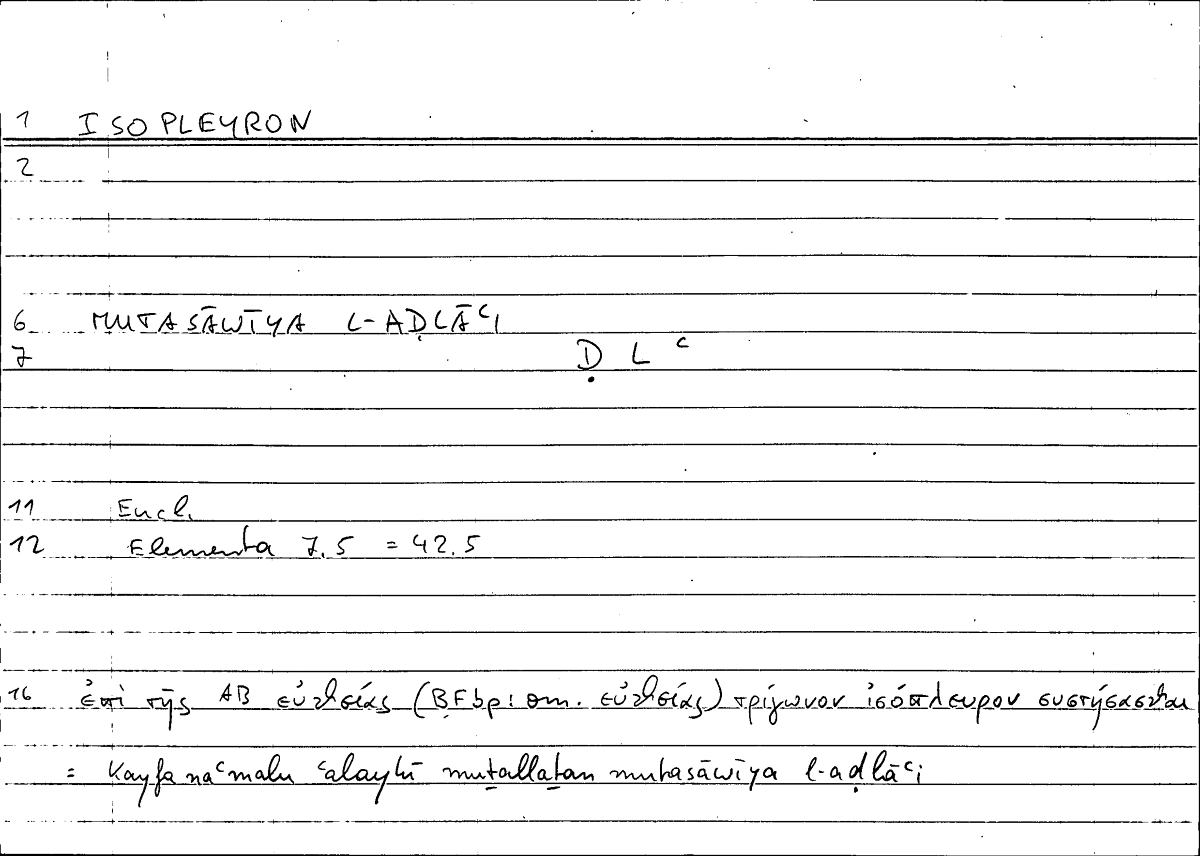 1 ISOPLEYRON
2
6 MUTASĀWĪYA L-AḌLĀʿI
7 Ḍ L ʿ
11 Eucl.
12 Elementa 7.5 = 42.5
16 ἐπὶ τῆς AB εὐθείας (BFbp: om. εὐθείας) τρίγωνον ἰσόπλευρον συστήσασθαι
= Kayfa naʿmalu ʿalayhī muṯallaṯan mutasāwīya l-aḍlāʿi